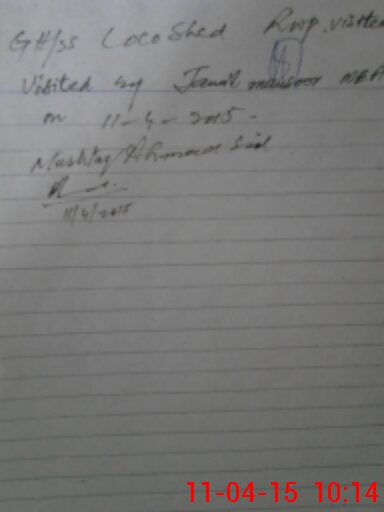 GH/ss Loco Shed Rwp. visited
Visited by Jamil mansoor MEA
on 11-4-2015-
Mushtaq Ahmad
11/4/2015
11-04-15 10:14